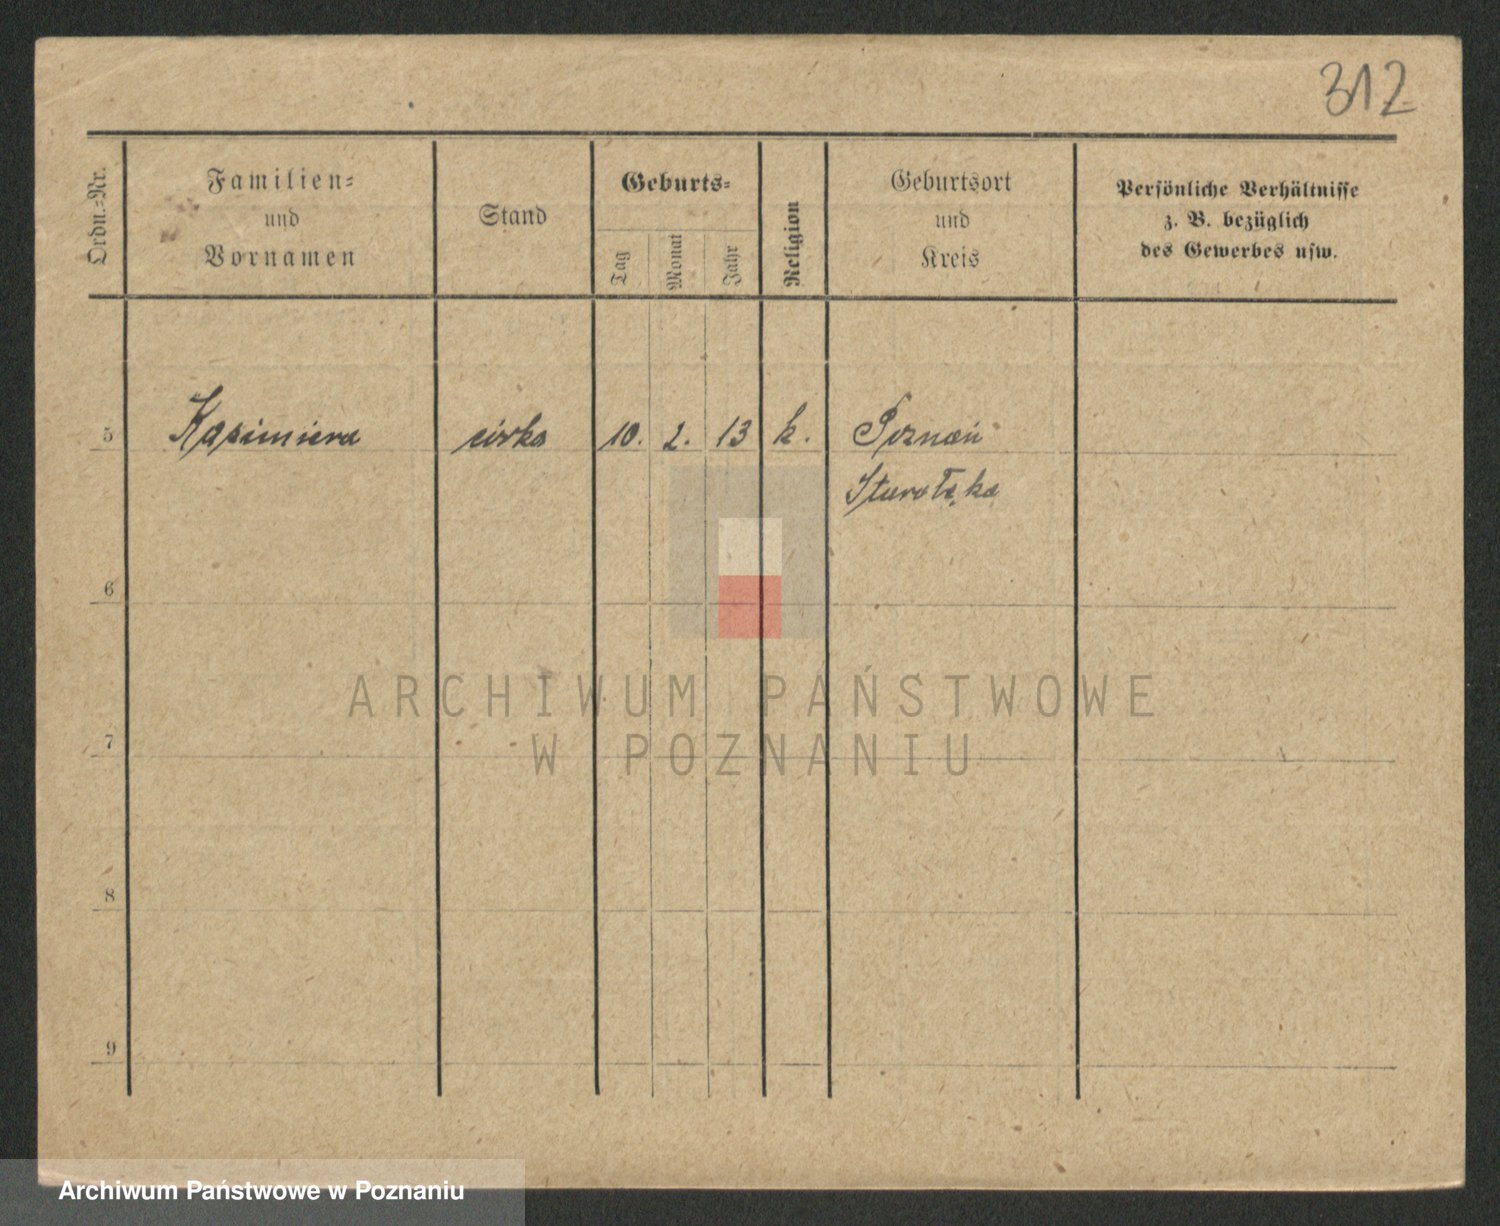 312
Ordn.-Nr.
Familien-
und
Vornamen
Stand
Geburts-
Tag
Monat
Jahr
Religion
Geburtsort
und
Kreis
Persönliche Verhältnisse
z. B. bezüglich
des Gewerbes usw.
5 Kazimiera córka 10. 2. 13 k. Poznań
Starołęka
6
7
8
9
ARCHIWUM PAŃSTWOWE
W POZNANIU
Archiwum Państwowe w Poznaniu